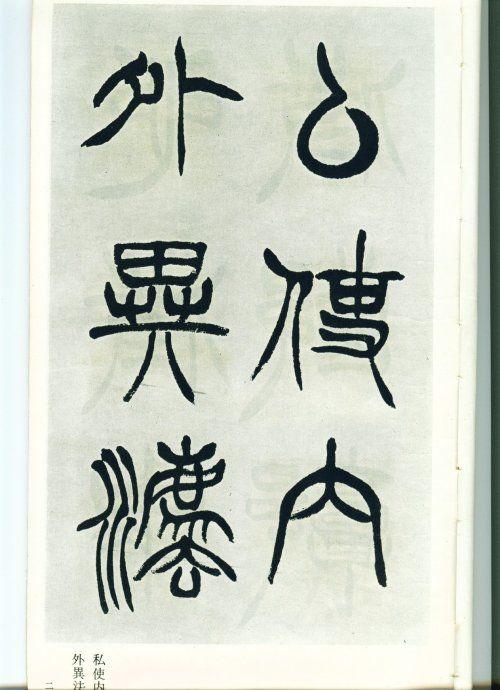 厶使内
外異灋
私使内
外異法
二